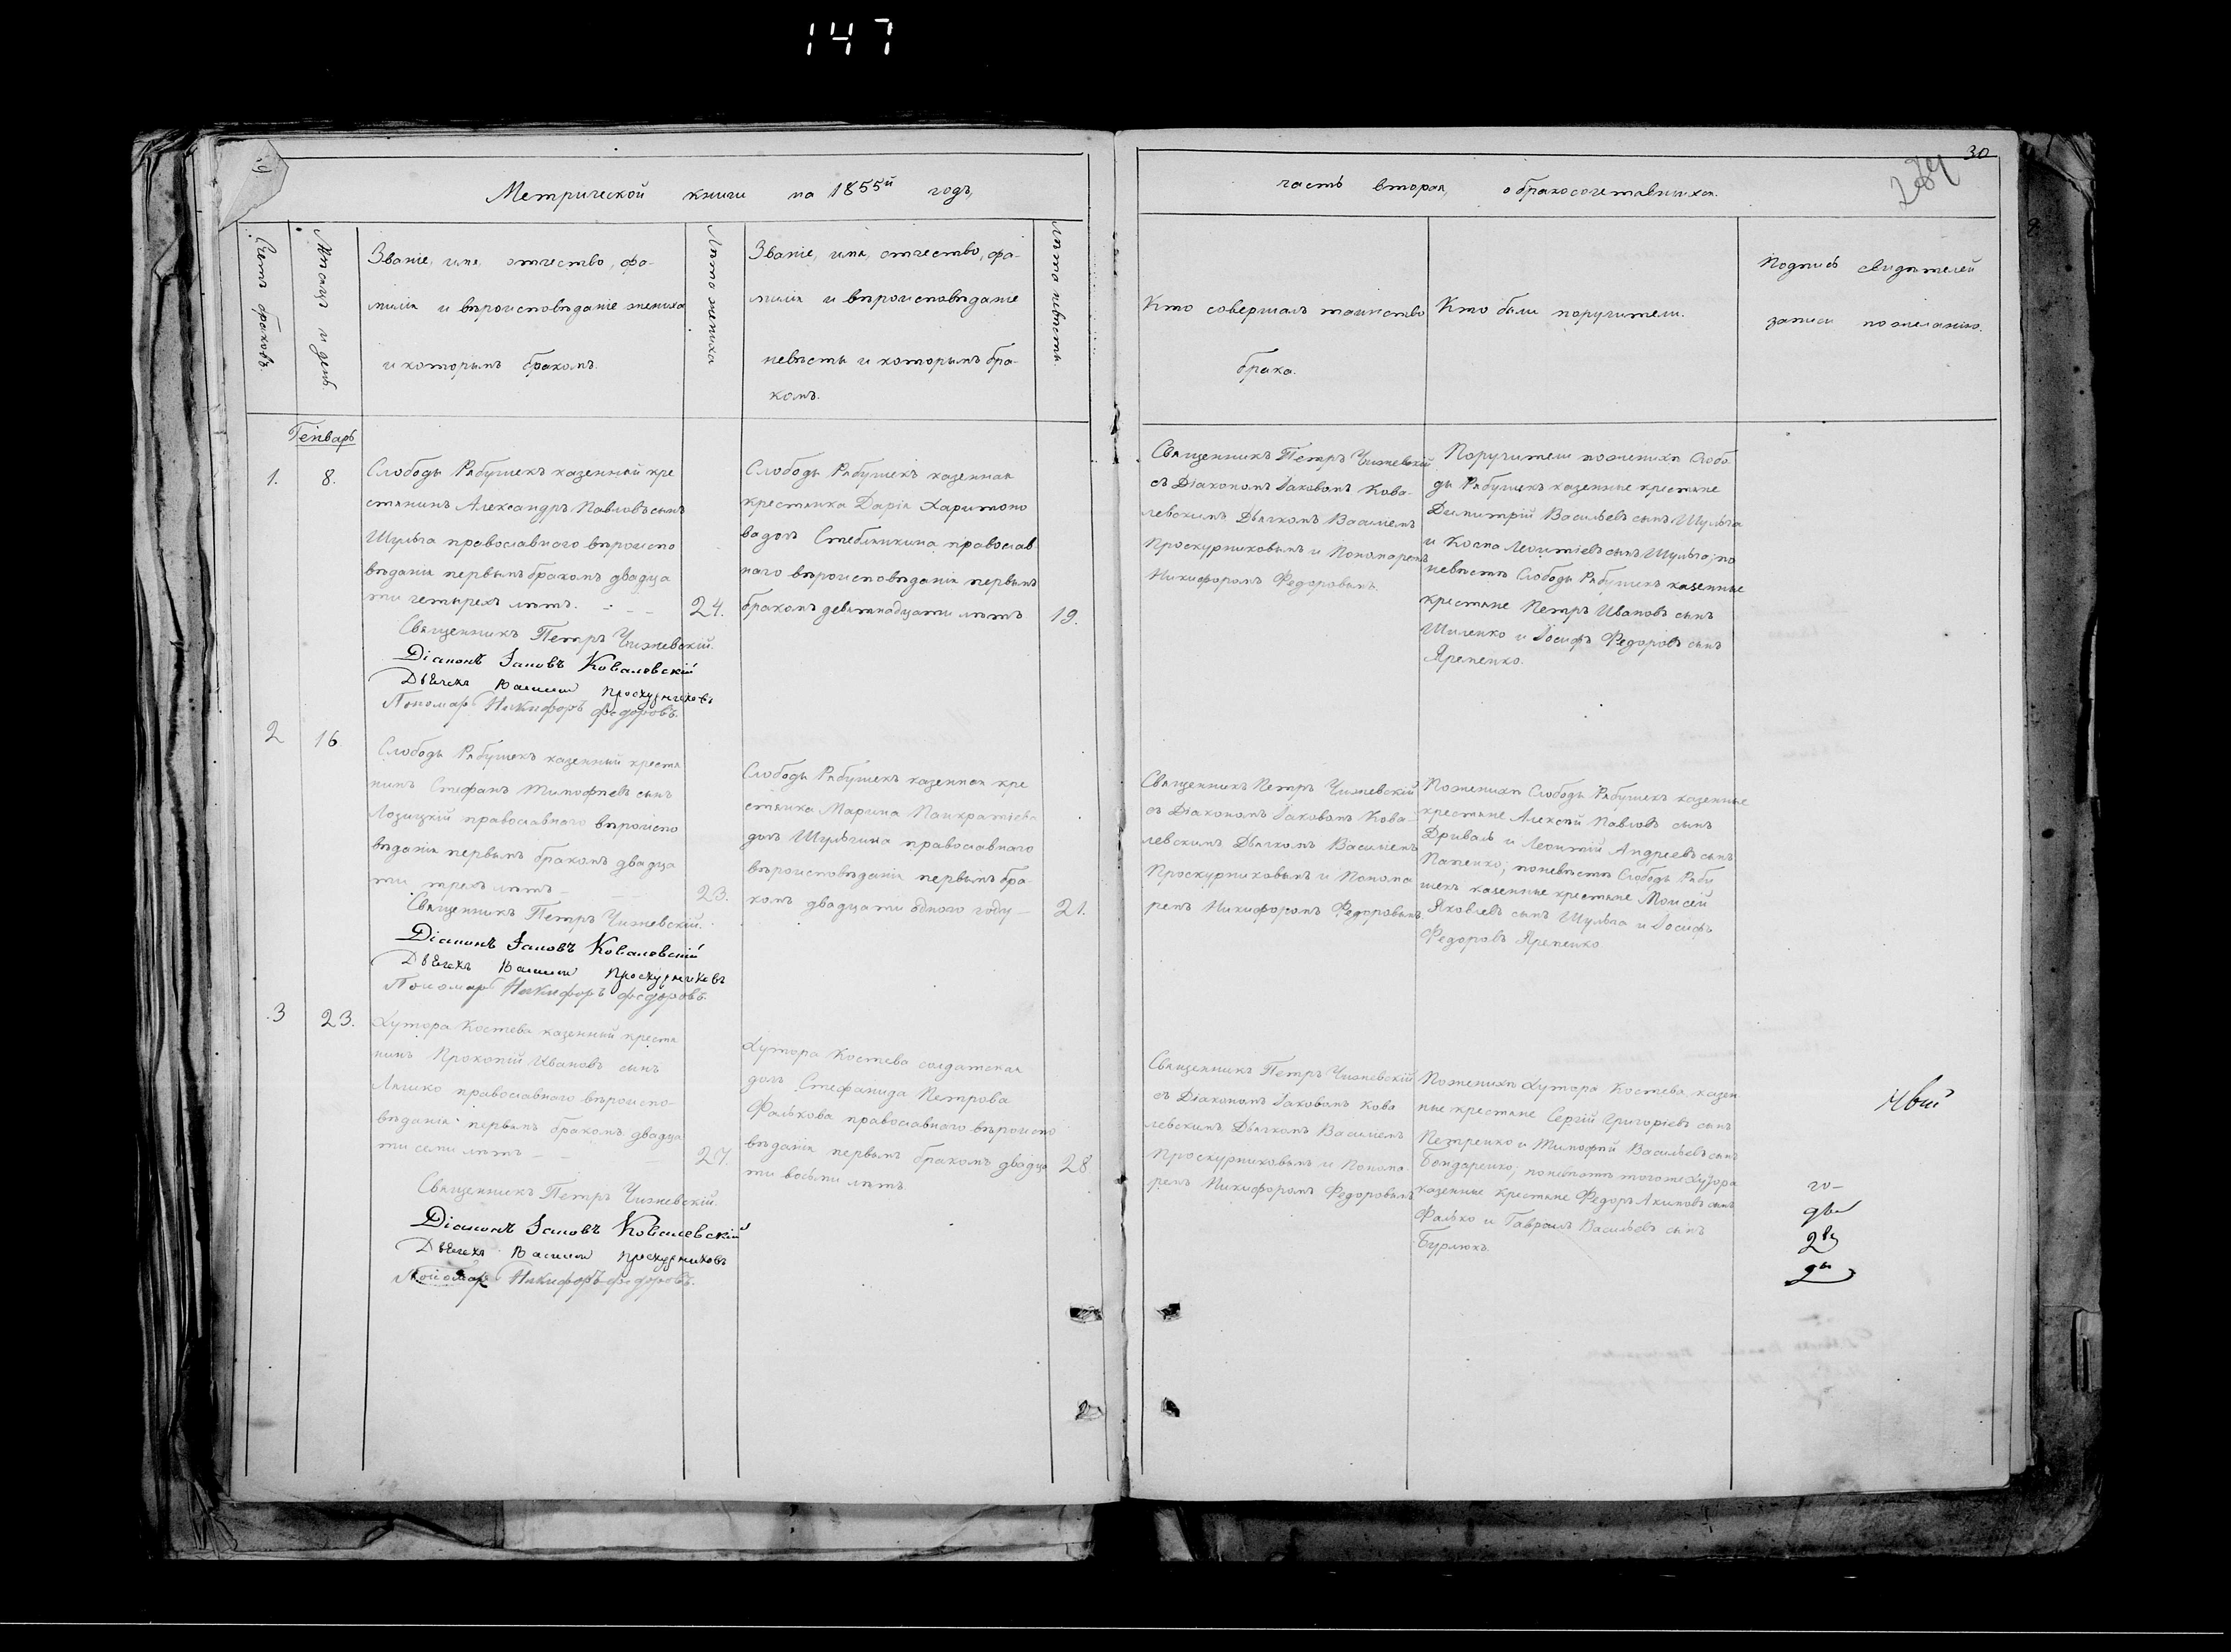 147
30
Метрической книги на 1855й годъ,
часть вторая, о бракосочетавшихся.
Счетъ браковъ.
Мѣсяцъ и день.
Званіе, имя, отчество, фа-
милія и вѣроисповѣданіе жениха
и которымъ бракомъ.
Лѣта жениха
Званіе, имя, отчество, фа-
милія и вѣроисповѣданіе
невѣсты и которымъ бра-
комъ.
Лѣта невѣсты.
Кто совершалъ таинство
брака.
Кто были поручители.
Подпись свидѣтелей
записи по желанію.
Генварь
1.
8.
Слободы Рябушекъ казенный кре
стянинъ Александръ Павловъ сынъ
Шульга православнаго вѣроиспо
вѣданія первымъ бракомъ двадца
ти четырехъ лѣтъ.
24.
Священникъ Петръ Чижевскій.
Діаконъ Іаковъ Ковалевскій
Дьячекъ Василій Проскурниковъ
Пономарь Никифоръ Федоровъ.
Слободы Рябушекъ казенная
крестянка Дарія Харитоно
ва дочь Стеблянкина православ
наго вѣроисповѣданія первымъ
бракомъ девятнадцати лѣтъ
19.
Священникъ Петръ Чижевскій
съ Діакономъ Іаковомъ Кова-
левскимъ Дьячкомъ Василіемъ
Проскурниковымъ и Пономаремъ
Никифоромъ Федоровымъ.
Поручители по женихѣ Слобо
ды Рябушекъ казенные крестяне
Димитрій Васильевъ сынъ Шульга
и Косма Леонтіевъ сынъ Шульга; по
невѣстѣ Слободы Рябушекъ казенные
крестяне Петръ Ивановъ сынъ
Шиленко и Іосифъ Федоровъ сынъ
Яременко.
2
16
Слободы Рябушекъ казенный крестя
нинъ Стефанъ Тимофѣевъ сынъ
Лозицкій православнаго вѣроиспо
вѣданія первымъ бракомъ двадца
ти трехъ лѣтъ
23.
Священникъ Петръ Чижевскій.
Діаконъ Іаковъ Ковалевскій
Дьячекъ Василій Проскурниковъ
Пономарь Никифоръ Федоровъ.
Слободы Рябушекъ казенная кре
стянка Марина Панкратіева
дочь Шульгина православнаго
вѣроисповѣданія первымъ бра-
комъ двадцати одного году
21.
Священникъ Петръ Чижевскій
съ Діакономъ Іаковомъ Кова-
левскимъ Дьячкомъ Василіемъ
Проскурниковымъ и Понома
ремъ Никифоромъ Федоровымъ.
По женихѣ Слободы Рябушекъ казенные
крестяне Алексѣй Павловъ сынъ
Дриваль и Леонтій Андреевъ сынъ
Папенко; по невѣстѣ Слободы Рябу
шекъ казенные крестяне Моисей
Яковлевъ сынъ Шульга и Іосифъ
Федоровъ Яременко
3
23.
Хутора Костева казенный крестя
нинъ Прокопій Ивановъ сынъ
Ляшко православнаго вѣроиспо-
вѣданія первымъ бракомъ двадца
ти семи лѣтъ
27.
Священникъ Петръ Чижевскій.
Діаконъ Іаковъ Ковалевскій
Дьячекъ Василій Проскурниковъ
Пономарь Никифоръ Федоровъ.
Хутора Костева солдатская
дочь Стефанида Петрова
Фалькова православнаго вѣроиспо
вѣданія первымъ бракомъ двадца
ти восьми лѣтъ.
28.
Священникъ Петръ Чижевскій
съ Діакономъ Іаковомъ Кова
левскимъ Дьячкомъ Василіемъ
Проскурниковымъ и Понома
ремъ Никифоромъ Федоровымъ
По женихѣ Хутора Костева казен
ные крестяне Сергій Григоріевъ сынъ
Петренко и Тимофей Васильевъ сынъ
Бондаренко; по невѣстѣ того же Хутора
казенные крестяне Федоръ Акимовъ сынъ
Фалько и Гавріилъ Васильевъ сынъ
Бурлюкъ.